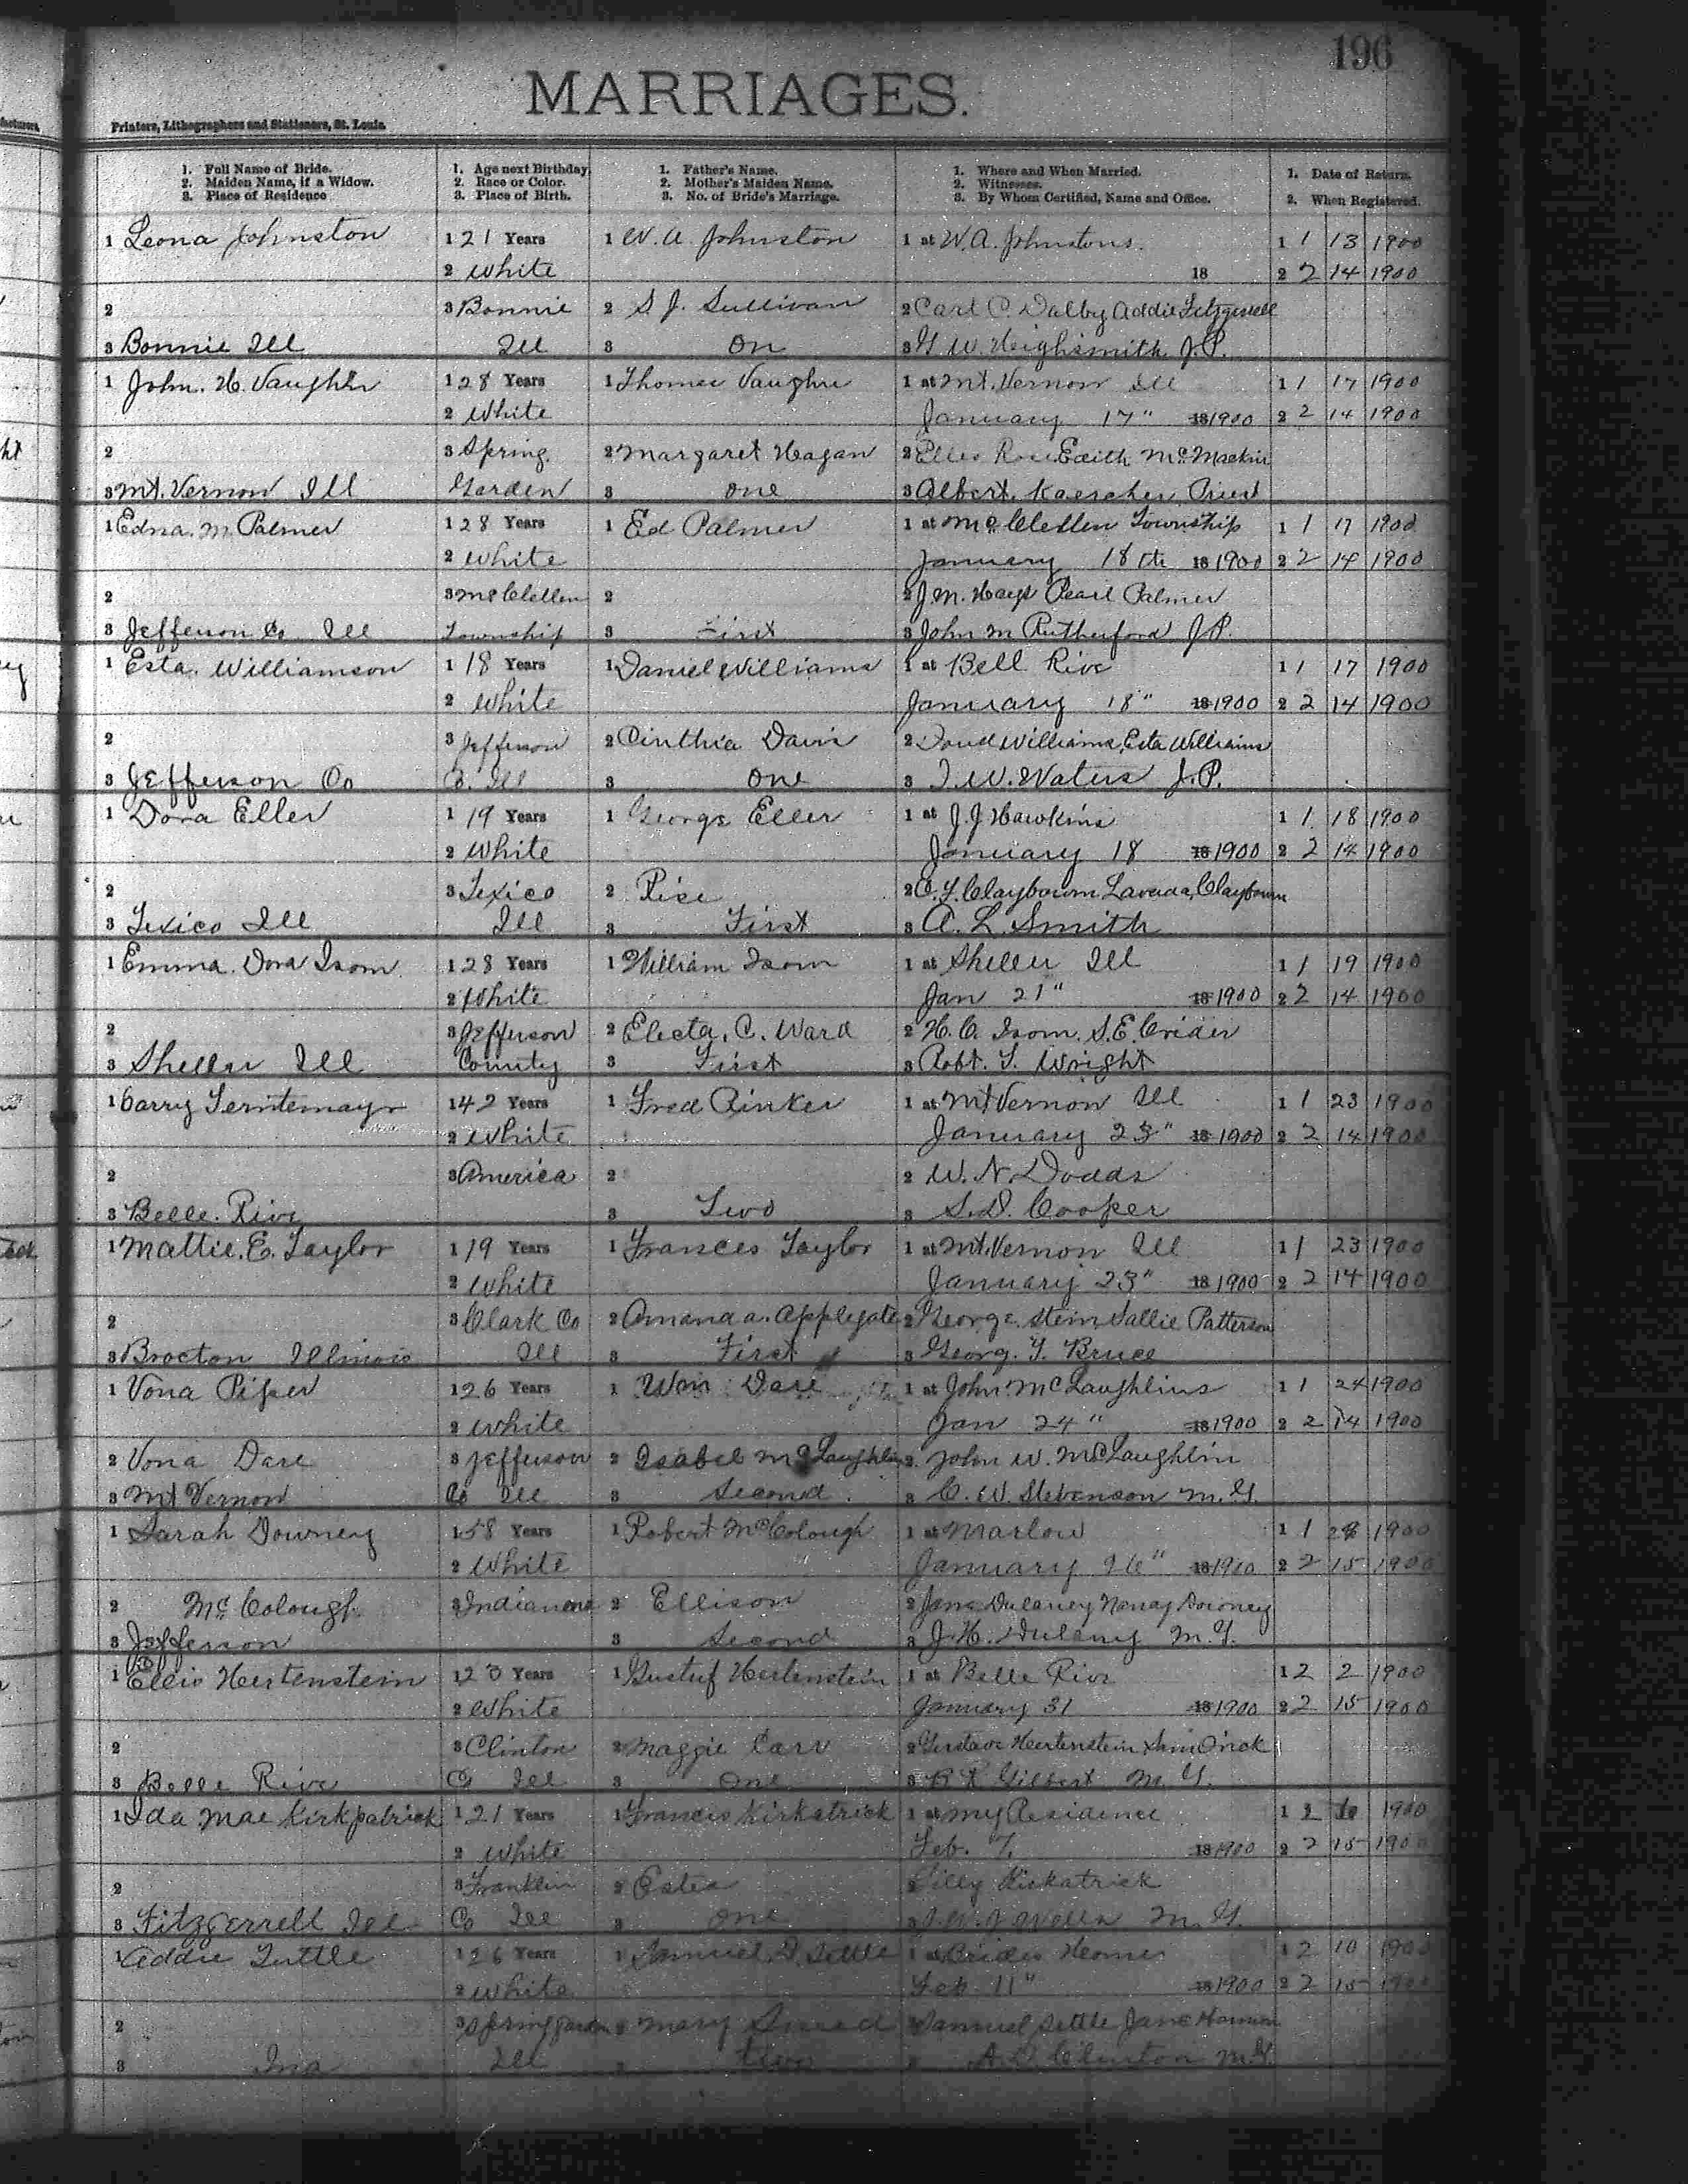 196
MARRIAGES.
Printers, Lithographers and Stationers, St. Louis.
1. Full Name of Bride. 1. Age next Birthday. 1. Father's Name. 1. Where and When Married. 1. Date of Return.
2. Maiden Name, if a Widow. 2. Race or Color. 2. Mother's Maiden Name. 2. Witnesses.
3. Place of Residence 3. Place of Birth. 3. No. of Bride's Marriage. 3. By Whom Certified, Name and Office. 2. When Registered.
1 Leona Johnston 1 21 Years 1 W. A. Johnston 1 at W. A. Johnstons. 1 1 13 1900
2 White 18 2 2 14 1900
2 3 Bonnie 2 S. J. Sullivan 2 Carl C. Dalby Addie Fitzgerrell
3 Bonnie Ill Ill 3 On 3 G W. Highsmith J.P.
1 John. H. Vaughn 1 28 Years 1 Thomas Vaughn 1 at Mt. Vernon Ill 1 1 17 1900
2 White January 17" 18 1900 2 2 14 1900
2 3 Spring 2 Margaret Hagan 2 Edith McMackin
3 Mt. Vernon Ill Garden 3 One 3 Albert. Kaescher Priest
1 Edna. M. Palmer 1 28 Years 1 Ed Palmer 1 at McClellen Township 1 1 17 1900
2 White January 18th 18 1900 2 2 14 1900
2 3 McClellen 2 2 J. M. Hays Pearl Palmer
3 Jefferson Co Ill Township 3 First 3 John M Rutherford J.P.
1 Esta. Williamson 1 18 Years 1 Daniel Williams 1 at Bell Rive 1 1 17 1900
2 White January 18" 18 1900 2 2 14 1900
2 3 Jefferson 2 Cinthia Davis 2 Williams, Esta Williams
3 Jefferson Co Co. Ill 3 One 3 T. W. Waters J.P.
1 Dora Eller 1 19 Years 1 George Eller 1 at J. J Hawkins 1 1 18 1900
2 White January 18 18 1900 2 2 14 1900
2 3 Texico 2 Rice 2 Claybourn Lavada Claybourn
3 Texico Ill Ill 3 First 3 A. L. Smith
1 Emma. Dora Isom. 1 28 Years 1 William Isom 1 at Sheller Ill 1 1 19 1900
2 White Jan 21" 18 1900 2 2 14 1900
2 3 Jefferson 2 Electa. C. Ward 2 H. C. Isom. S. E. Crider
3 Sheller Ill County 3 First 3 Robt. T. Wright
1 Carry 1 42 Years 1 Fred Rinker 1 at Mt Vernon Ill 1 1 23 1900
2 White January 23" 18 1900 2 2 14 1900
2 3 America 2 2 W. N. Dodds
3 Belle. Rive 3 Two 3 S. D. Cooper
1 Mattie. E. Taylor 1 19 Years 1 Frances Taylor 1 at Mt. Vernon Ill 1 1 23 1900
2 White January 23" 18 1900 2 2 14 1900
2 3 Clark Co 2 Amanda a. Applegate 2 George. Stein Sallie Patterson
3 Brocton Illinois Ill 3 First 3 Georg. T. Bruce
1 Vona Piper 1 26 Years 1 Wm Dare 1 at John McLaughlins 1 1 24 1900
2 White Jan 24" 18 1900 2 2 14 1900
2 Vona Dare 3 Jefferson 2 Isabel McLaughlin 2 John W. McLaughlin
3 Mt Vernon Co Ill 3 Second 3 C. W. Stevenson M. G.
1 Sarah Downey 1 58 Years 1 Robert McColough 1 at Marlow 1 1 1900
2 White January 26" 18 1900 2 2 15 1900
2 McColough 3 Indianna 2 Ellison 2 Jane Dulaney Downey
3 Jefferson Co 3 Second 3 J. H. Dulany M. G.
1 Hertenstein 1 20 Years 1 Gustuf Hertenstein 1 at Belle Rive 1 2 2 1900
2 White January 31 18 1900 2 2 15 1900
2 3 Clinton 2 Maggie Carr 2 Gustave Hertenstein
3 Belle Rive Co Ill 3 One 3 Gilbert M. G.
1 Ida Mae Kirkpatrick 1 21 Years 1 Francis Kirkatrick 1 at My Residence 1 2 10 1900
2 White Feb. 7. 18 1900 2 2 15 1900
2 3 Franklin 2 Estea 2 Kirkatrick
3 Fitzgerrell Ill Co Ill 3 One 3 M. G.
1 Addie Tuttle 1 26 Years 1 Samuel D. Settle 1 at Brides Home 1 2 10 1900
2 White Feb 11" 18 1900 2 2 15 1900
2 3 Spring Garden 2 Mary 2 Samuel Settle Jane
3 Ina Ill two Clinton M. G.